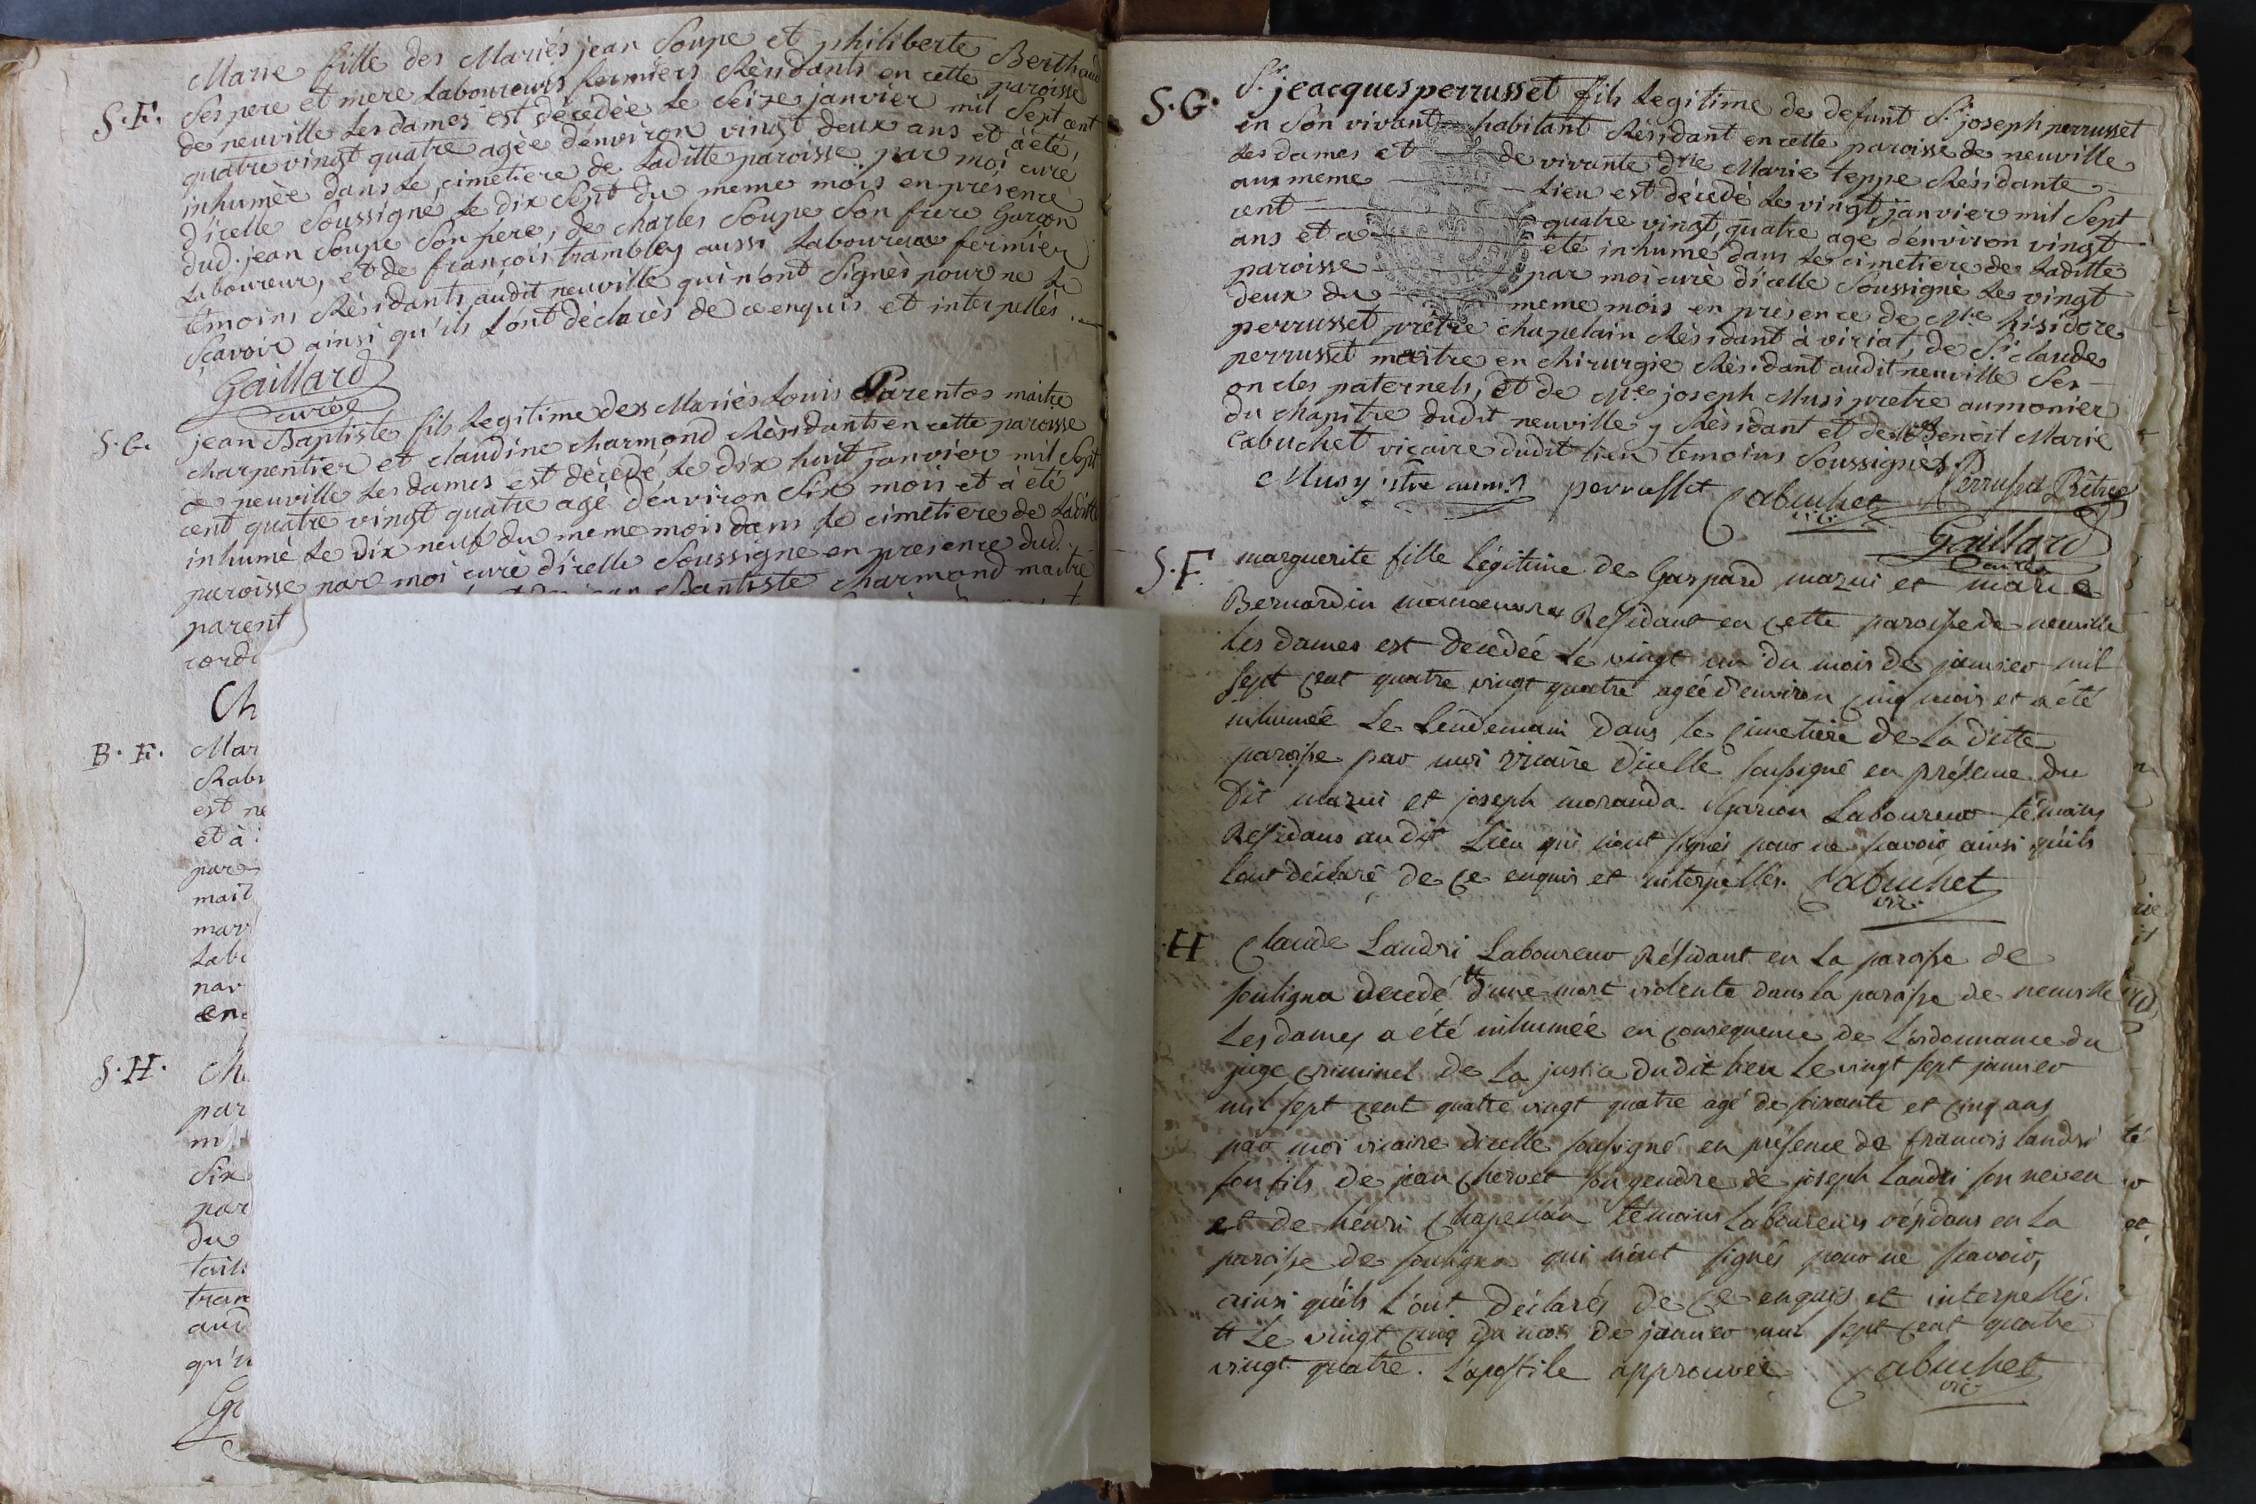 Marie fille des Mariés jean Soupe et philiberte Berthaud
S.F. Ses pere et mere Laboureurs fermiers Résidants en cette paroisse
de neuville Les dames est décédée Le Seize janvier mil Sept cent
quatre vingt quatre agée d'environ vingt deux ans et à été,
inhumée dans Le cimetiere de Laditte paroisse par moi curé
d'icelle Soussigné Le dix Sept du meme mois en présence
dud. jean Soupe Son pere, de charles Soupe Son frere Garçon
Laboureur, et de françois trambley aussi Laboureur fermier
temoins Résidants audit neuville qui n'ont Signés pour ne Le
Sçavoir ainsi qu'ils L'ont déclarés de ce enquis et interpellés.
Gaillard
curé
S.G. jean Baptiste fils Legitime des Mariés Louis Parentos maitre
charpentier et claudine charmond Résidants en cette paroisse
de neuville Les dames est décédé Le dix huit janvier mil Sept
cent quatre vingt quatre agé d'environ Six mois et à été
inhumé Le dix neuf du meme mois dans Le cimetiere de Laditte
paroisse par moi curé d'icelle Soussigné en presence dud.
parent Baptiste charmond maitre
cord
Ch
B.F. Mar
Rab
est ne
et à
par
mait
mar
Lab
par
en
S.H. Ch
par
mi
Six
par
du
tail
tram
aud
qu'i
Ga
S.G. Sr. jeacques perrusset fils Legitime de defunt Sr. joseph perrusset
en Son vivant habitant Résidant en cette paroisse de neuville
Les dames et de vivante dlle Marie teppe Résidante
au meme Lieu est décédé Le vingt janvier mil Sept
cent quatre vingt quatre agé d'environ vingt
ans et a été inhumé dans Le cimetiere de Laditte
paroisse par moi curé d'icelle Soussigné Le vingt
deux du meme mois en présence de Mre hisidore
perrusset prêtre chapelain Résidant à viriat, de Sr. claude
perrusset maitre en chirurgie Résidant audit neuville Ses
oncles paternels, et de Mre joseph Musi pretre aumonier
du chapitre dudit neuville y Résidant et de Mre Benoit Marie
Cabuchet vicaire dudit lieu temoins Soussignés
Musy ptre aum. perrusset Cabuchet vic Perrusset Prêtre
Gaillard
curé
S.F. marguerite fille Légitime de Gaspard mazui et marie
Bernardin manoeuvre Residant en cette paroisse de neuville
les dames est decedée le vingt un du mois de janvier mil
sept cent quatre vingt quatre agée d'environ cinq mois et a été
inhumée le lendemain dans le cimetiere de la ditte
paroisse par moi vicaire d'icelle soussigné en présence du
dit mazui et joseph moranda Garçon Laboureur témoins
Residans au dit Lieu qui n'ont signés pour ne sçavoir ainsi qu'ils
l'ont déclaré de ce enquis et interpellés. Cabuchet
vic.
.H Claude Landri Laboureur Résidant en la paroisse de
souligna decedé # d'une mort violente dans la paroisse de neuville
Les dames a été inhumée en consequence de l'ordonnance du
juge criminel de la justice dudit lieu le vingt sept janvier
mil sept cent quatre vingt quatre agé de soixante et cinq ans
par moi vicaire d'icelle soussigné en présence de francois landri
son fils de jean chervet son gendre de joseph landri son neveu
et de henri chapellan témoins laboureurs résidans en la
paroisse de souligna qui n'ont signés pour ne sçavoir,
ainsi qu'ils l'ont déclarés de ce enquis et interpellés.
# Le vingt cinq du mois de janvier mil sept cent quatre
vingt quatre. l'apostile approuvée Cabuchet
vic